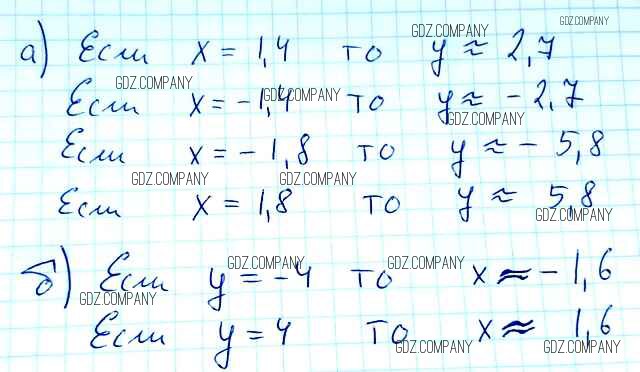 а) Если x = 1,4 то y ≈ 2,7
Если x = -1,4 то y ≈ -2,7
Если x = -1,8 то y ≈ -5,8
Если x = 1,8 то y ≈ 5,8
б) Если y = -4 то x ≈ -1,6
Если y = 4 то x ≈ 1,6
GDZ.COMPANY
GDZ.COMPANY
GDZ.COMPANY
GDZ.COMPANY
GDZ.COMPANY
GDZ.COMPANY
GDZ.COMPANY
GDZ.COMPANY
GDZ.COMPANY
GDZ.COMPANY
GDZ.COMPANY
GDZ.COMPANY
GDZ.COMPANY